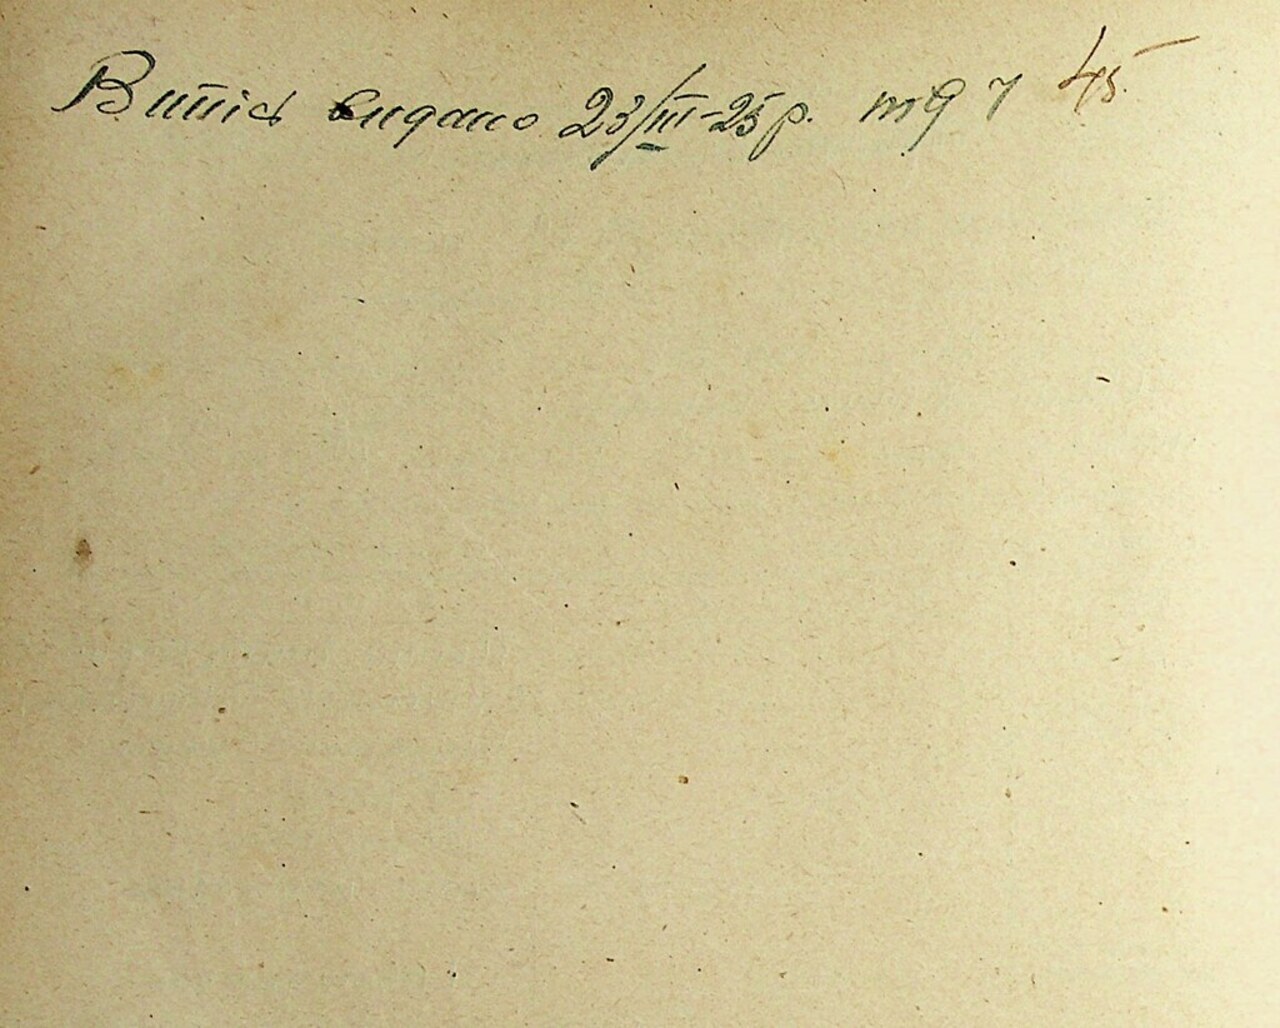 Витяг видано 23/III-25 р. № 97 45